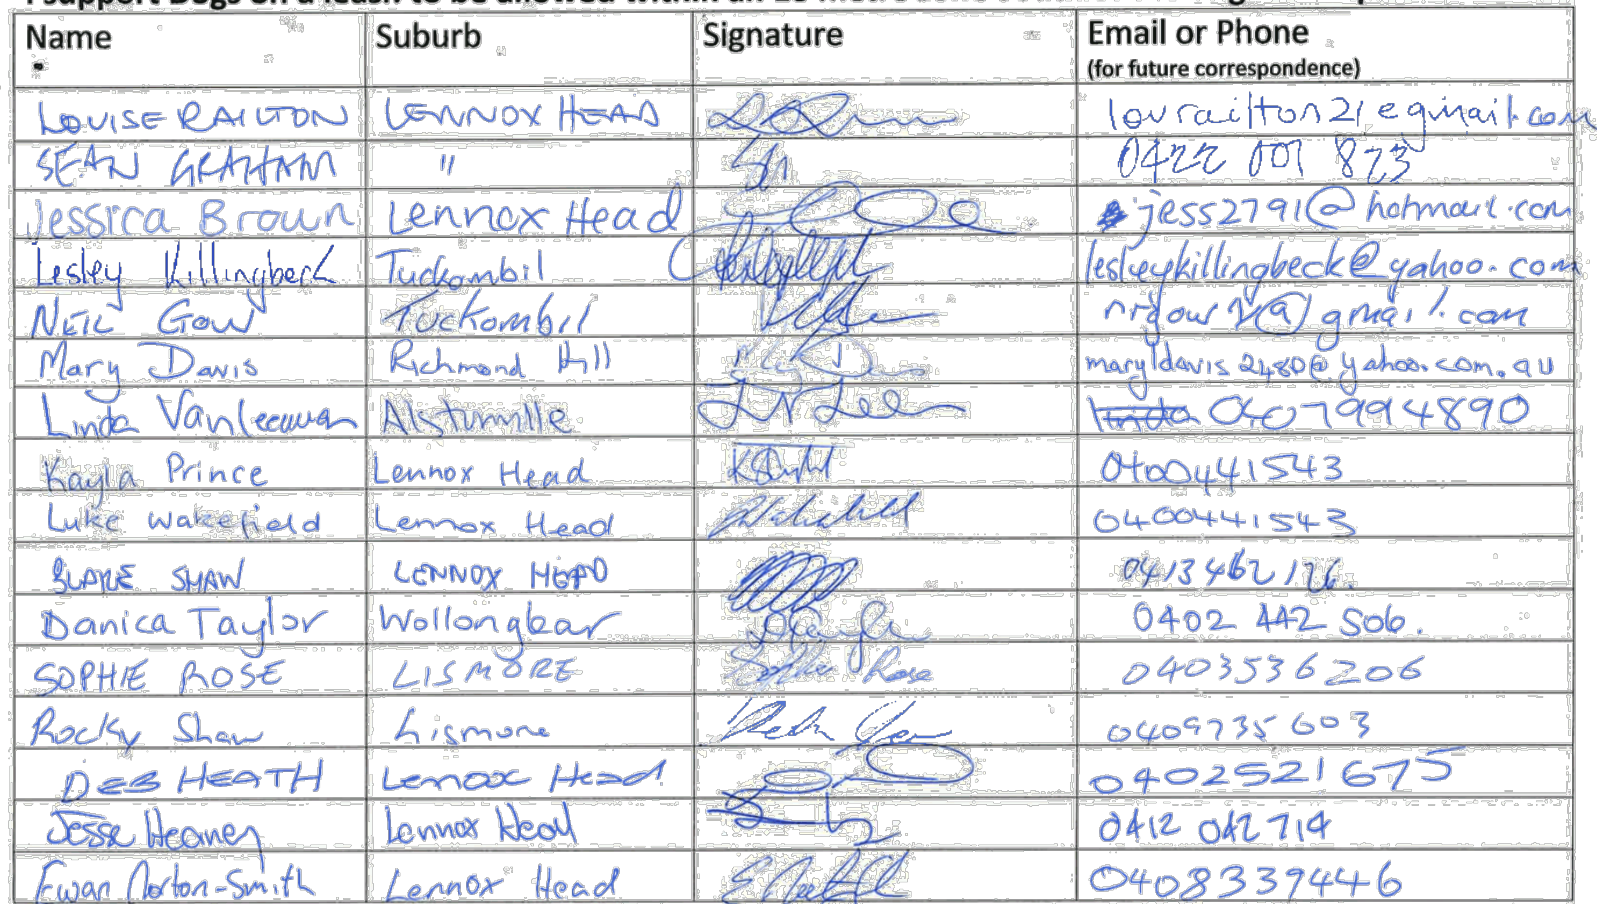 I support Dogs on a leash to be allowed within an
Name Suburb Signature Email or Phone
(for future correspondence)
LOUISE RAILTON LENNOX HEAD lourailton21@gmail.com
SEAN GRAHAM " 0422 001 823
Jessica Brown Lennox Head jess2791@hotmail.com
Lesley Killingbeck Tuckombil lesleykillingbeck@yahoo.com
NEIL GOW Tuckombil @gmail.com
Mary Davis Richmond Hill maryldavis2480@yahoo.com.au
Linda Vanleeuwen 0407994890
Kayla Prince Lennox Head 0400441543
Luke Wakefield Lennox Head 0400441543
BLAKE SHAW LENNOX HEAD 0413462126.
Danica Taylor Wollongbar 0402 442 506.
SOPHIE ROSE LISMORE Sophie Rose 0403536206
Rocky Shaw Lismore 0409735603
DEB HEATH Lennox Head 0402521675
Jesse Heaney Lennox Head 0412 042 714
Ewan Norton-Smith Lennox Head 0408339446